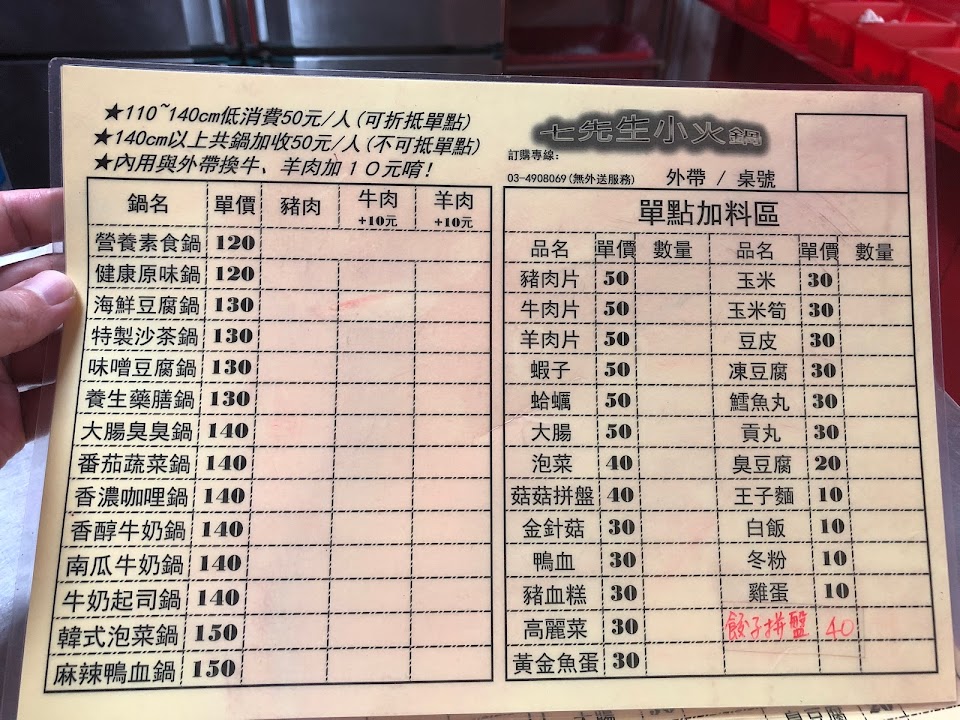 ★110~140cm低消費50元/人(可折抵單點)
★140cm以上共鍋加收50元/人(不可抵單點)
★內用與外帶換牛、羊肉加10元唷!
鍋名 單價 豬肉 牛肉+10元 羊肉+10元
營養素食鍋 120
健康原味鍋 120
海鮮豆腐鍋 130
特製沙茶鍋 130
味噌豆腐鍋 130
養生藥膳鍋 130
大腸臭臭鍋 140
番茄蔬菜鍋 140
香濃咖哩鍋 140
香醇牛奶鍋 140
南瓜牛奶鍋 140
牛奶起司鍋 140
韓式泡菜鍋 150
麻辣鴨血鍋 150
七先生小火鍋
訂購專線:
03-4908069(無外送服務) 外帶 / 桌號
單點加料區
品名 單價 數量 品名 單價 數量
豬肉片 50 玉米 30
牛肉片 50 玉米筍 30
羊肉片 50 豆皮 30
蝦子 50 凍豆腐 30
蛤蠣 50 鱈魚丸 30
大腸 50 貢丸 30
泡菜 40 臭豆腐 20
菇菇拼盤 40 王子麵 10
金針菇 30 白飯 10
鴨血 30 冬粉 10
豬血糕 30 雞蛋 10
高麗菜 30 餃子拼盤 40
黃金魚蛋 30
大腸 50 臭豆腐 20